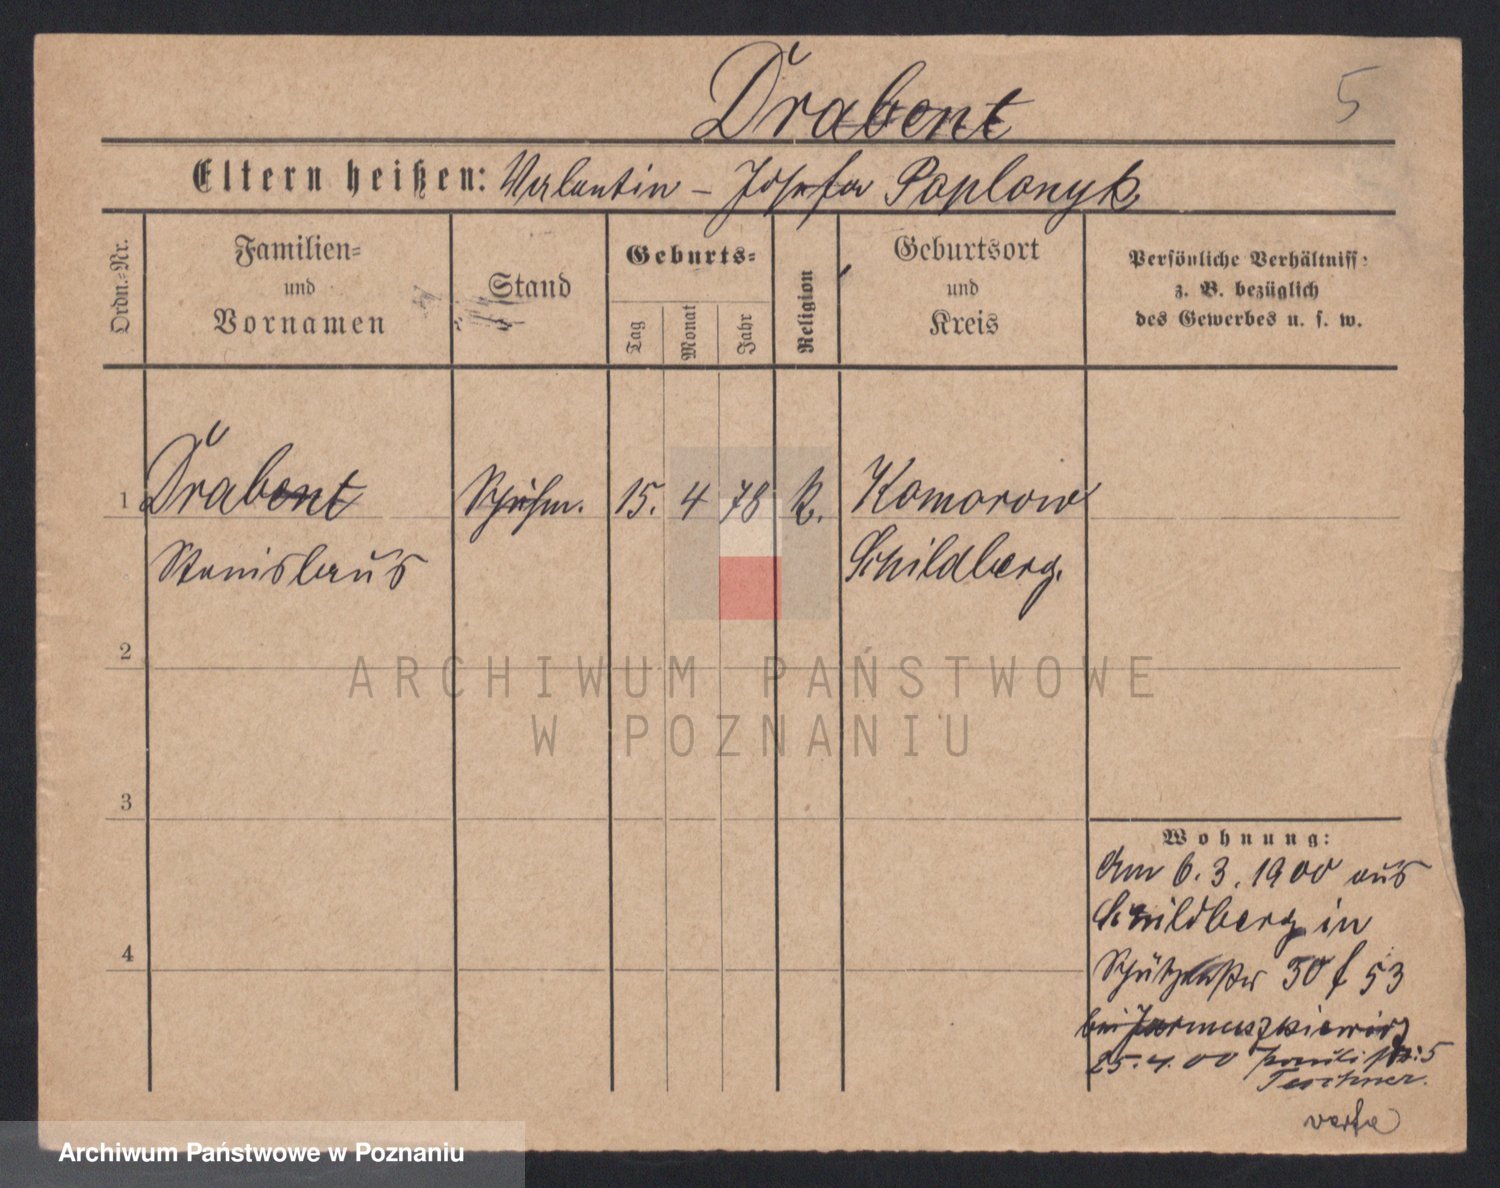 Drabent
5
Eltern heißen: Valentin – Josefa Poplonyk
Ordn.-Nr.
Familien-
und
Vornamen
Stand
Geburts-
Tag
Monat
Jahr
Religion
Geburtsort
und
Kreis
Persönliche Verhältniss-
z. B. bezüglich
des Gewerbes u. s. w.
1 Drabent Schuhm. 15. 4 78 k. Komorow
Stanislaus Schildberg.
2
ARCHIWUM PAŃSTWOWE
W POZNANIU
3
4
Wohnung:
Am 6.3.1900 aus
Schildberg in
30 f 53
bei Jarmuszkiewicz
25.4.00 5
Teschner.
Archiwum Państwowe w Poznaniu